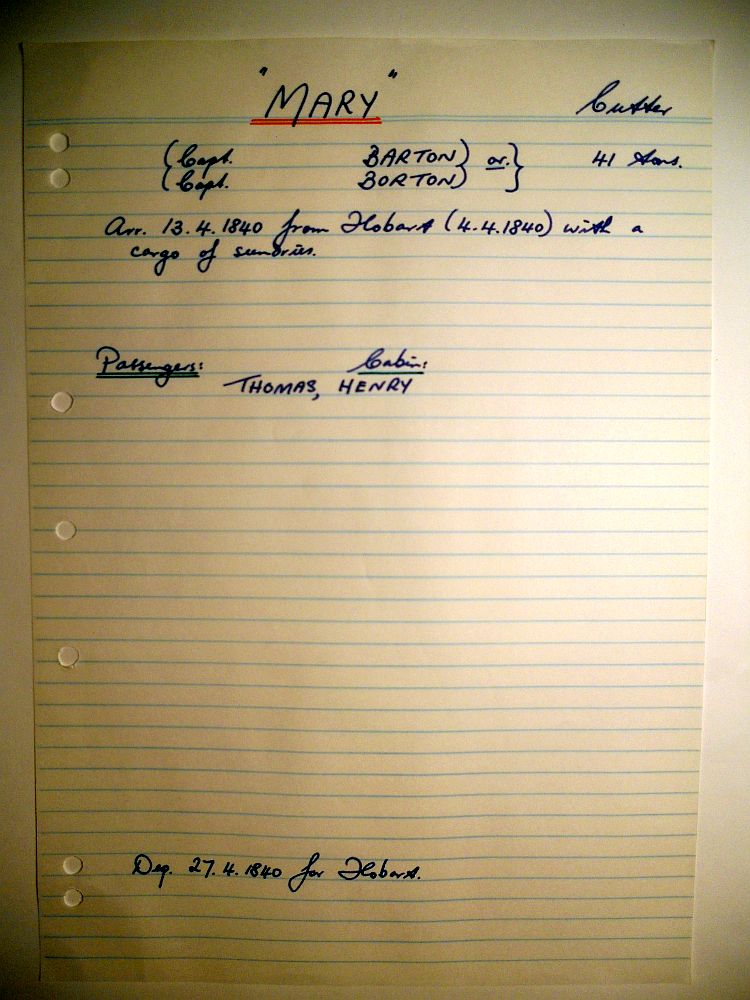 "MARY" Cutter
(Capt. BARTON) or.} 41 tons.
(Capt. BORTON)
Arr. 13.4.1840 from Hobart (4.4.1840) with a
cargo of sundries.
Passengers: Cabin:
THOMAS, HENRY
Dep. 27.4.1840 for Hobart.